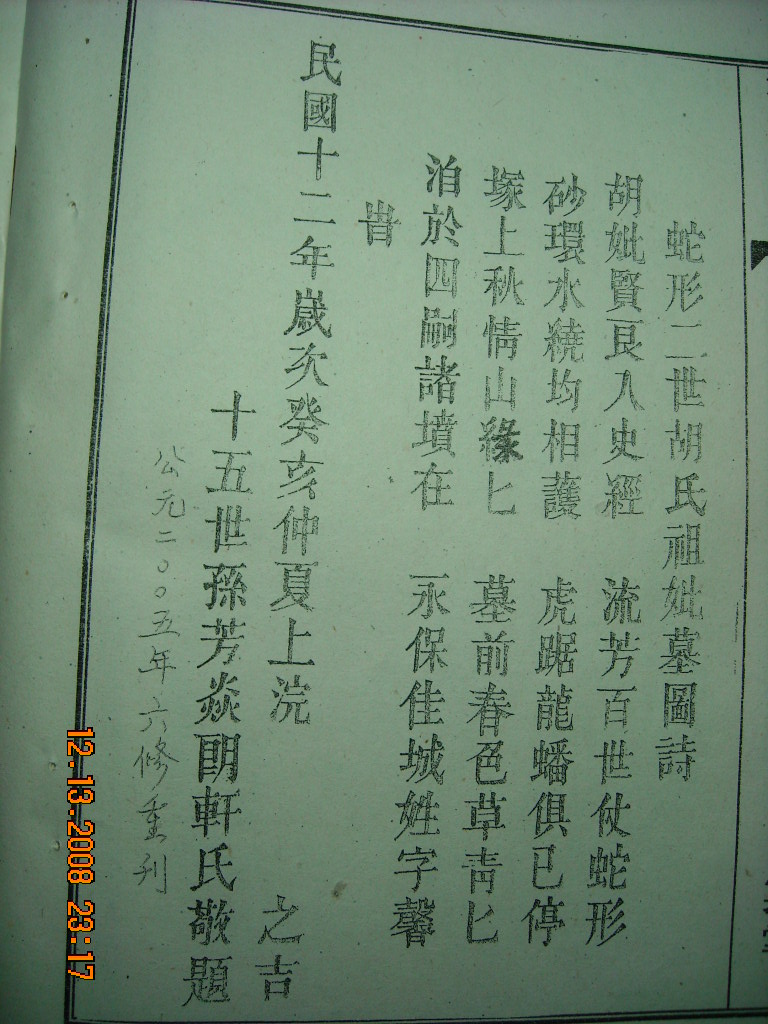 蛇形二世胡氏祖妣墓圖詩
胡妣賢良入史經 流芳百世仗蛇形
砂環水繞均相護 虎踞龍蟠俱已停
塚上秋情山綠匕 墓前春色草青匕
洎於四嗣諸墳在 永保佳城姓字馨
旹
民國十二年歲次癸亥仲夏上浣 之吉
十五世孫芳焱朗軒氏敬題
公元二〇〇五年六修重刊
12.13.2008 23:17